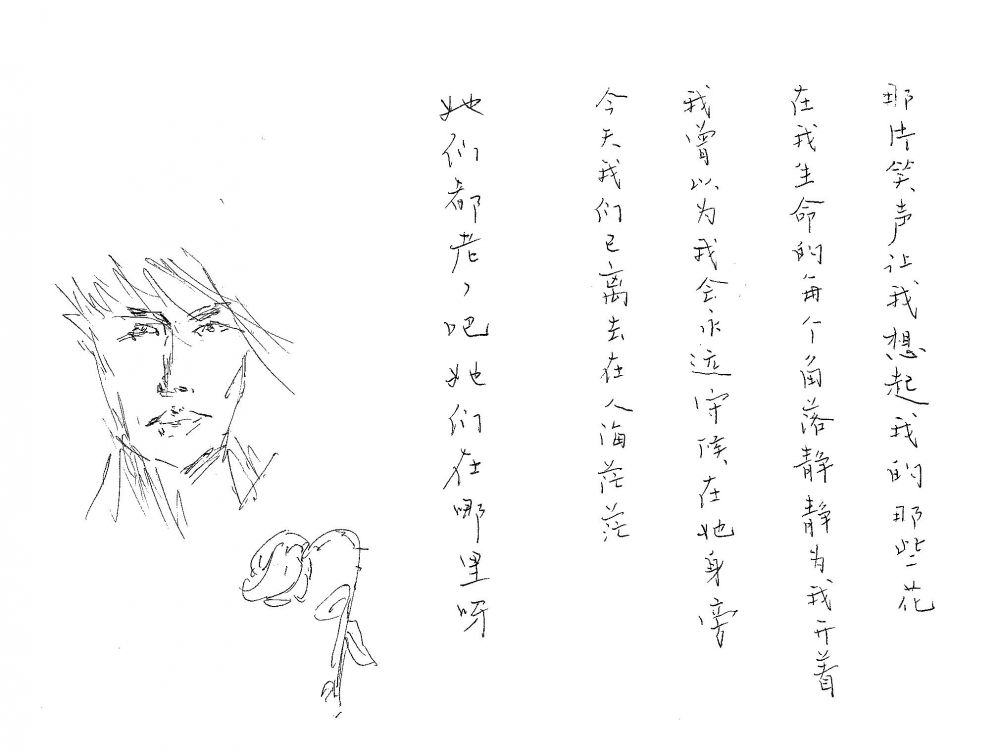 那片笑声让我想起我的那些花
在我生命的每个角落静静为我开着
我曾以为我会永远守候在她身旁
今天我们已离去在人海茫茫
她们都老了吧她们在哪里呀